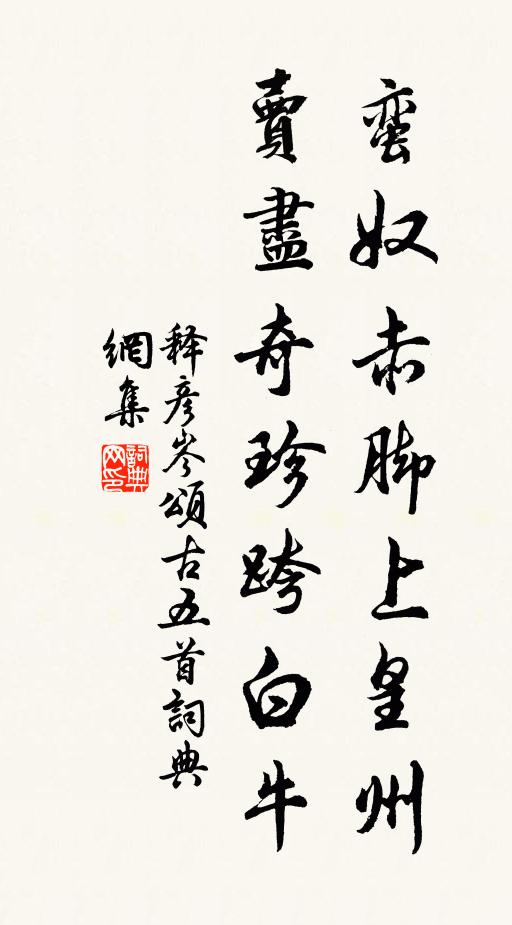 蛮奴赤脚上皇州
賣盡奇珍跨白牛
释彦岑頌古五首詞典
網集
詞典
网印